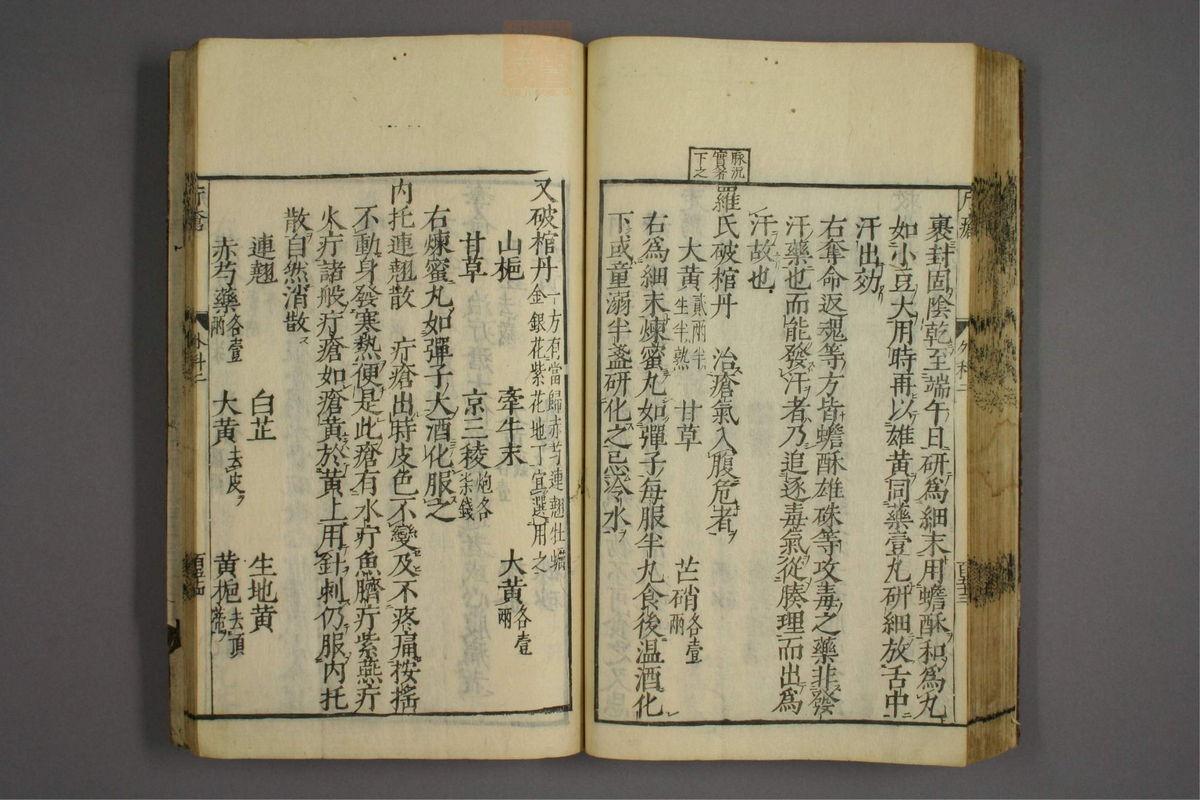 裹封固陰乾至端午日研爲細末用蟾酥和爲丸
如小豆大用時再以雄黃同藥壹丸研細放舌中
汗出効
右奪命返魂等方皆蟾酥雄硃等攻毒之藥非發
汗藥也而能發汗者乃追逐毒氣從腠理而出爲
汗故也
脉沉
實者
下之
羅氏破棺丹　治瘡氣入腹危者
大黃貳兩半生半熟　甘草　芒硝各壹兩
右爲細末煉蜜丸如彈子每服半丸食後温酒化
下或童溺半盞研化之忌冷水
又破棺丹一方有當歸赤芍連翹牡蠣金銀花紫花地丁宜選用之
山梔　牽牛末　大黃各壹兩
甘草　京三稜炮各柒錢
右煉蜜丸如彈子大酒化服之
內托連翹散　疔瘡出時皮色不變及不疼痛按搖
不動身發寒熱便是此瘡有水疔魚臍疔紫燕疔
火疔諸般疔瘡如瘡黃於黃上用針刺仍服內托
散自然消散
連翹　白芷　生地黃
赤芍藥各壹兩　大黃去皮　黃梔去頂蒂
外科二